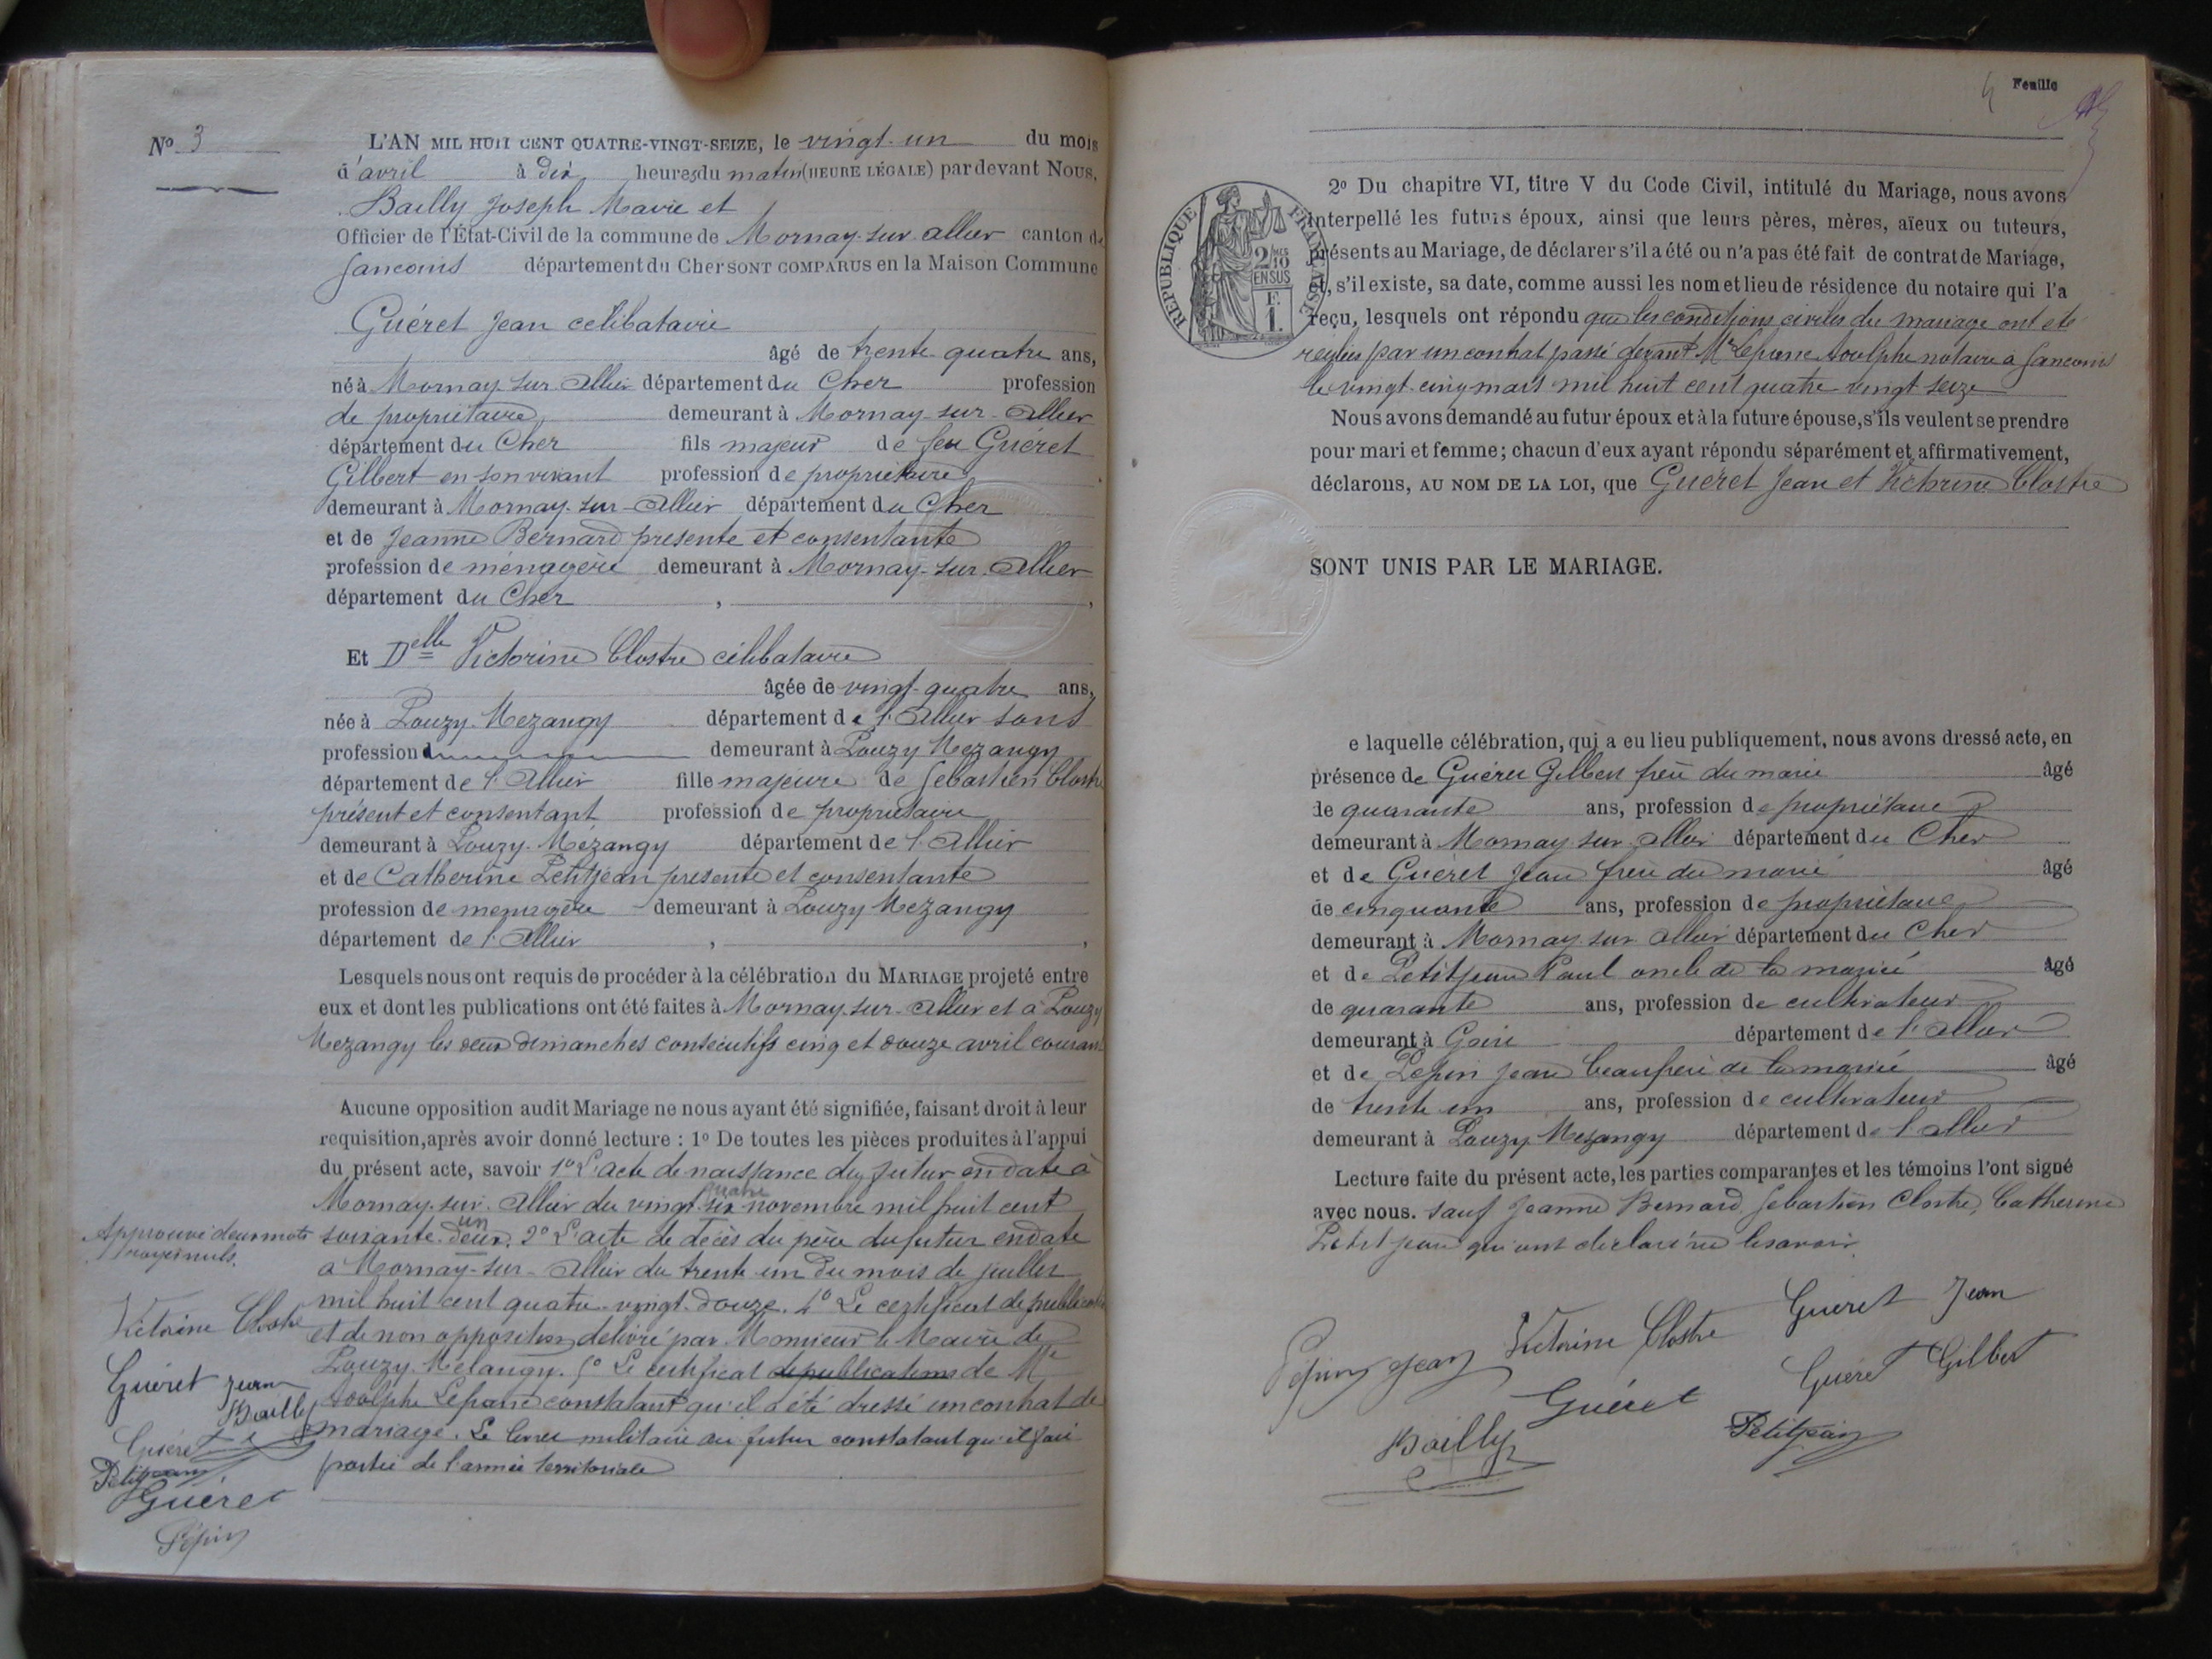 Nº 3
L'AN MIL HUIT CENT QUATRE-VINGT-SEIZE, le vingt-un du mois
d'avril à dix heures du matin (HEURE LÉGALE) par devant NOUS,
Bailly Joseph Mavie et
Officier de l'État-Civil de la commune de Mornay-sur-Allier canton de
Sancoins département du Cher SONT COMPARUS en la Maison Commune
Guéret Jean celibataire
âgé de trente-quatre ans,
né à Mornay-sur-Allier département du Cher profession
de propriétaire demeurant à Mornay-sur-Allier
département du Cher fils majeur de feu Guéret
Gilbert en son vivant profession de propriétaire
demeurant à Mornay-sur-Allier département du Cher
et de Jeanne Bernard presente et consentante
profession de ménagère demeurant à Mornay-sur-Allier
département du Cher , ,
Et Delle Victorine Clostre célibataire
âgée de vingt-quatre ans,
née à Pouzy-Mezangy département de l'Allier sans
profession d demeurant à Pouzy Mezangy
département de l'Allier fille majeure de Sebastien Clostre
présent et consentant profession de propriétaire
demeurant à Pouzy-Mézangy département de l'Allier
et de Catherine Petitjean presente et consentante
profession de menagère demeurant à Pouzy Mezangy
département de l'Allier , ,
Lesquels nous ont requis de procéder à la célébration du MARIAGE projeté entre
eux et dont les publications ont été faites à Mornay-sur-Allier et à Pouzy
Mezangy les deux dimanches consécutifs cinq et douze avril courant
Aucune opposition audit Mariage ne nous ayant été signifiée, faisant droit à leur
requisition, après avoir donné lecture : 1º De toutes les pièces produites à l'appui
du présent acte, savoir 1º L'acte de naissance du futur en date à
Mornay-sur-Allier du vingt-six quatre novembre mil huit cent
soixante-deux un. 2º L'acte de décès du père du futur en date
a Mornay-sur-Allier du trente-un du mois de juillet
mil huit cent quatre-vingt-douze. 4º Le certificat de publications
et de non opposition délivré par Monsieur le Maire de
Pouzy-Mélangy. 5º Le certificat de publications de Me
Adolphe Lepanne constatant qu'il a été dressé un contrat de
mariage. Le livret militaire du futur constatant qu'il fait
partie de l'armée territoriale
Approuvé deux mots
rayés nuls.
Victorine Clostre
Guéret Jean
Bailly
Guéret
Petitjean
Guéret
Pépin
4 Feuille
2º Du chapitre VI, titre V du Code Civil, intitulé du Mariage, nous avons
interpellé les futurs époux, ainsi que leurs pères, mères, aïeux ou tuteurs,
présents au Mariage, de déclarer s'il a été ou n'a pas été fait de contrat de Mariage,
et, s'il existe, sa date, comme aussi les nom et lieu de résidence du notaire qui l'a
reçu, lesquels ont répondu que les conditions civiles du mariage ont été
reglées par un contrat passé devant Me Lepanne Adolphe notaire a Sancoins
le vingt-cinq mars mil huit cent quatre-vingt-seize
RÉPUBLIQUE FRANÇAISE
2/10
EN SUS
F.
1.
Nous avons demandé au futur époux et à la future épouse, s'ils veulent se prendre
pour mari et femme; chacun d'eux ayant répondu séparément et affirmativement,
déclarons, AU NOM DE LA LOI, que Guéret Jean et Victorine Clostre
SONT UNIS PAR LE MARIAGE.
e laquelle célébration, qui a eu lieu publiquement, nous avons dressé acte, en
présence de Guéret Gilbert frère du marié âgé
de quarante ans, profession de propriétaire
demeurant à Mornay sur Allier département du Cher
et de Guéret Jean frère du marié âgé
de cinquante ans, profession de propriétaire
demeurant à Mornay sur Allier département du Cher
et de Petitjean Paul oncle de la mariée âgé
de quarante ans, profession de cultivateur
demeurant à département de l'Allier
et de Pepin Jean beaufrère de la mariée âgé
de trente un ans, profession de cultivateur
demeurant à Pouzy Mezangy département de l'Allier
Lecture faite du présent acte, les parties comparantes et les témoins l'ont signé
avec nous. sauf Jeanne Bernard, Sebastien Clostre, Catherine
Petitjean qui ont déclaré ne le savoir
Pépin Jean Victorine Clostre Gueret Jean
Guéret Gueret Gilbert
Bailly Petitjean